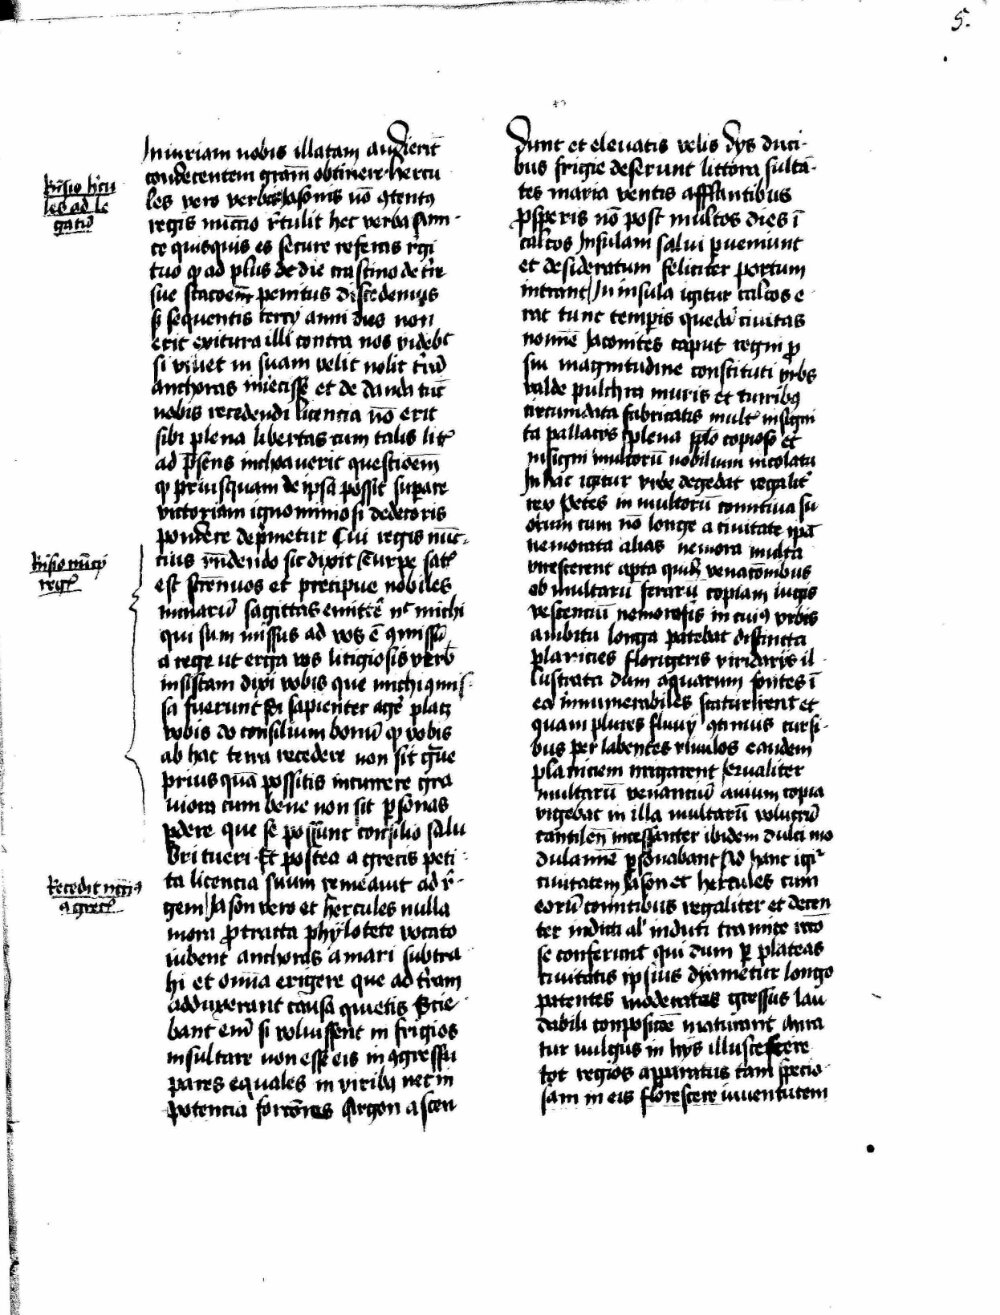 5.
Iniuriam nobis illatam audierit
condecentem gram̄ obtinere hercu
les vero verbis Jasonis nō 9tentꝰ
regis nuncio r̄tulit hec verba san
te quisquis es secure referas r̄gi
tuo ꝙ ad plus de die crastino de tr̄e
sue stacoēm penitus discedemus
si sequentis tercÿ anni dies non
erit exitura illi contra nos videbt
si viuet in suam velit nolit tr̄ā
anchoras iniecisse et de danda tūc
nobis recedendi licencia nō erit
sibi plena libertas cum talis lit᷑
ad p̄sens inchoauerit questioēm
ꝙ priusquam de ipsa possit supare
victoriam ignominiosi dedecoris
pondere dep̄metur Cui regis nūc
cius rn̄dendo sic dixit Turpe sat᷑
est strēnuos et precipue nobiles
minarū sagittas emittē nc̄ michi
qui sum missus ad vos ē 9missū
a rege ut erga vos litigiosis verb̄
insistam dixi vobis que michi 9mis
sa fuerunt Si sapienter agē placꝫ
vobis do consilium bonū ꝙ vobis
ab hac terra recedere non sit graue
prius quā possitis incurrere gra
uiora cum bene non sit p̄sonas
ꝑdere que se possunt consilio salu
bri tueri Et postea a grecis peti
ta licencia suum remeauit ad r̄
gem Jason vero et hercules nulla
mora ꝓtracta phylotete vocato
iubent anchoras a mari subtra
hi et omīa erigere que ad tr̄am
adduxerant causa quietis Scie
bant enī si voluissent in frigios
insultare non esse eis in 9gressu
pares equales in viribꝰ nec in
potencia forcōres Argon ascen
Rn̄sio h̄cu
les ad le
gatū
Rn̄sio nūcÿ
reg᷑
Recedit nūciꝰ
a grec᷑
dunt et eleuatis velis dÿs duci
bus frigie deserunt littora sulcā
tes maria ventis afflantibus
ꝓsperis nō post multos dies ī
calcos Insulam salui ꝑuemiunt
et desideratum feliciter portum
intrant In insula igitur calcos e
rat tunc tempis quedā ciuitas
nomē Jacomites caput regni ꝓ
sui magnitudine constituti vrbs
valde pulchra muris et turribꝰ
circumdata fabricatis mult᷑ insigni
ta pallacijs plena pplō copioso et
insigni multorū nobilium incolatu
In hac igitur vrbe degebat regalit᷑
rex Oetes in multorū comitiua su
orum cum nō longe a ciuitate ipā
nemorata alias nemora multa
virescerent apta quidē venacōnibus
ob multarū ferarū copiam iugis
vescenciū nemorosis in cuiꝰ vrbis
ambitu longa patebat distincta
planicies florigeris viridarijs il
lustrata dum aquarum fontes ī
ea innumerabiles scaturirent et
quam plures fluuÿ 9tinuis cursi
bus per labentes riuulos eandem
planiciem irrigarent Equaliter
multarū venanciū auium copia
vigebat in illa multarū volucrū
cantilenē incessanter ibidem dulci mo
dulamine ꝑsonabant Ad hanc igit᷑
ciuitatem Jason et hercules cum
eorū comitibus regaliter et decen
ter induti al' induti tramite recto
se conferunt qui dum ꝑ plateas
ciuitatis ipsius dyametur longo
patentes moderatos gressus lau
dabili conposicōe maturant mira
tur vulgus in hÿs illuscescere
tot regios apparatus tam specio
sam in eis florescere iuuentutem